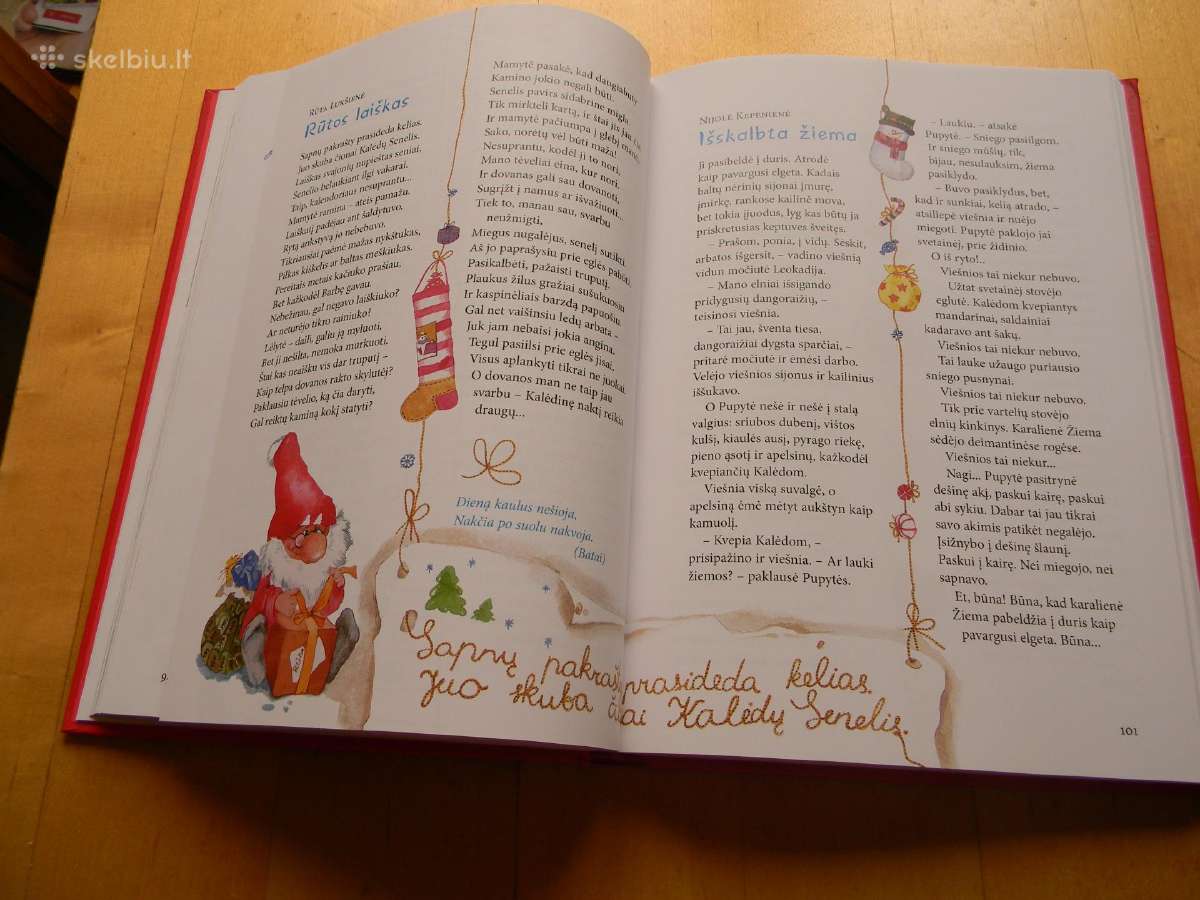 skelbiu.lt
RŪTA LUKŠIENĖ
Rūtos laiškas
Sapnų pakrašty prasideda kelias.
Juo skuba čionai Kalėdų Senelis.
Laiškas svajonių nupieštas seniai,
Senelio belaukiant ilgi vakarai.
Taip, kalendoriaus nesuprantu...
Mamytė ramina – ateis pamažu.
Laiškutį padėjau ant šaldytuvo,
Rytą ankstyvą jo nebebuvo.
Tikriausiai paėmė mažas nykštukas,
Pilkas kiškelis ar baltas meškiukas.
Pereitais metais kačiuko prašiau,
Bet kažkodėl Barbę gavau.
Nebežinau, gal negavo laiškiuko?
Ar neturėjo tikro rainiuko!
Lėlytė – daili, galiu ją myluoti,
Bet ji nešilta, nemoka murkuoti.
Štai kas neaišku vis dar truputį –
Kaip telpa dovanos rakto skylutėj?
Paklausiu tėvelio, ką čia daryti,
Gal reiktų kaminą kokį statyti?
Mamytė pasakė, kad daugiabuty
Kamino jokio negali būti.
Senelis pavirs sidabrine migla
Tik mirkteli kartą, ir štai jis jau
Ir mamytė pačiumpa į glėbį
Sako, norėtų vėl būti maža!
Nesuprantu, kodėl ji to nori,
Mano tėveliai eina, kur nori.
Ir dovanas gali sau dovanoti,
Sugrįžt į namus ar išvažiuoti...
Tiek to, manau sau, svarbu
neužmigti,
Miegus nugalėjus, senelį sutikti.
Aš jo paprašysiu prie eglės pabūti,
Pasikalbėti, pažaisti truputį.
Plaukus žilus gražiai sušukuosiu
Ir kaspinėliais barzdą papuošiu
Gal net vaišinsiu ledų arbata –
Juk jam nebaisi jokia angina.
Tegul pasiilsi prie eglės jisai,
Visus aplankyti tikrai ne juokai.
O dovanos man ne taip jau
svarbu – Kalėdinę naktį reikia
draugų...
Dieną kaulus nešioja,
Nakčia po suolu nakvoja.
(Batai)
9
NIJOLĖ KEPENIENĖ
Išskalbta žiema
Ji pasibeldė į duris. Atrodė
kaip pavargusi elgeta. Kadais
baltų nėrinių sijonai įmurę,
įmirkę, rankose kailinė mova,
bet tokia įjuodus, lyg kas būtų ja
priskretusias keptuves šveitęs.
– Prašom, ponia, į vidų. Sėskit,
arbatos išgersit, – vadino viešnią
vidun močiutė Leokadija.
– Mano elniai išsigando
pridygusių dangoraižių, –
teisinosi viešnia.
– Tai jau, šventa tiesa,
dangoraižiai dygsta sparčiai, –
pritarė močiutė ir ėmėsi darbo.
Velėjo viešnios sijonus ir kailinius
iššukavo.
O Pupytė nešė ir nešė į stalą
valgius: sriubos dubenį, vištos
kulšį, kiaulės ausį, pyrago riekę,
pieno ąsotį ir apelsinų, kažkodėl
kvepiančių Kalėdom.
Viešnia viską suvalgė, o
apelsiną ėmė mėtyt aukštyn kaip
kamuolį.
– Kvepia Kalėdom, –
prisipažino ir viešnia. – Ar lauki
žiemos? – paklausė Pupytės.
– Laukiu. – atsakė
Pupytė. – Sniego pasiilgom.
Ir sniego mūšių, tik,
bijau, nesulauksim, žiema
pasiklydo.
– Buvo pasiklydus, bet,
kad ir sunkiai, kelią atrado, –
atsiliepė viešnia ir nuėjo
miegoti. Pupytė paklojo jai
svetainėj, prie židinio.
O iš ryto!..
Viešnios tai niekur nebuvo.
Užtat svetainėj stovėjo
eglutė. Kalėdom kvepiantys
mandarinai, saldainiai
kadaravo ant šakų.
Viešnios tai niekur nebuvo.
Tai lauke užaugo puriausio
sniego pusnynai.
Viešnios tai niekur nebuvo.
Tik prie vartelių stovėjo
elnių kinkinys. Karalienė Žiema
sėdėjo deimantinėse rogėse.
Viešnios tai niekur...
Nagi... Pupytė pasitrynė
dešinę akį, paskui kairę, paskui
abi sykiu. Dabar tai jau tikrai
savo akimis patikėt negalėjo.
Įsižnybo į dešinę šlaunį.
Paskui į kairę. Nei miegojo, nei
sapnavo.
Et, būna! Būna, kad karalienė
Žiema pabeldžia į duris kaip
pavargusi elgeta. Būna...
Sapnų pakrašty prasideda kelias.
Juo skuba čionai Kalėdų Senelis.
101